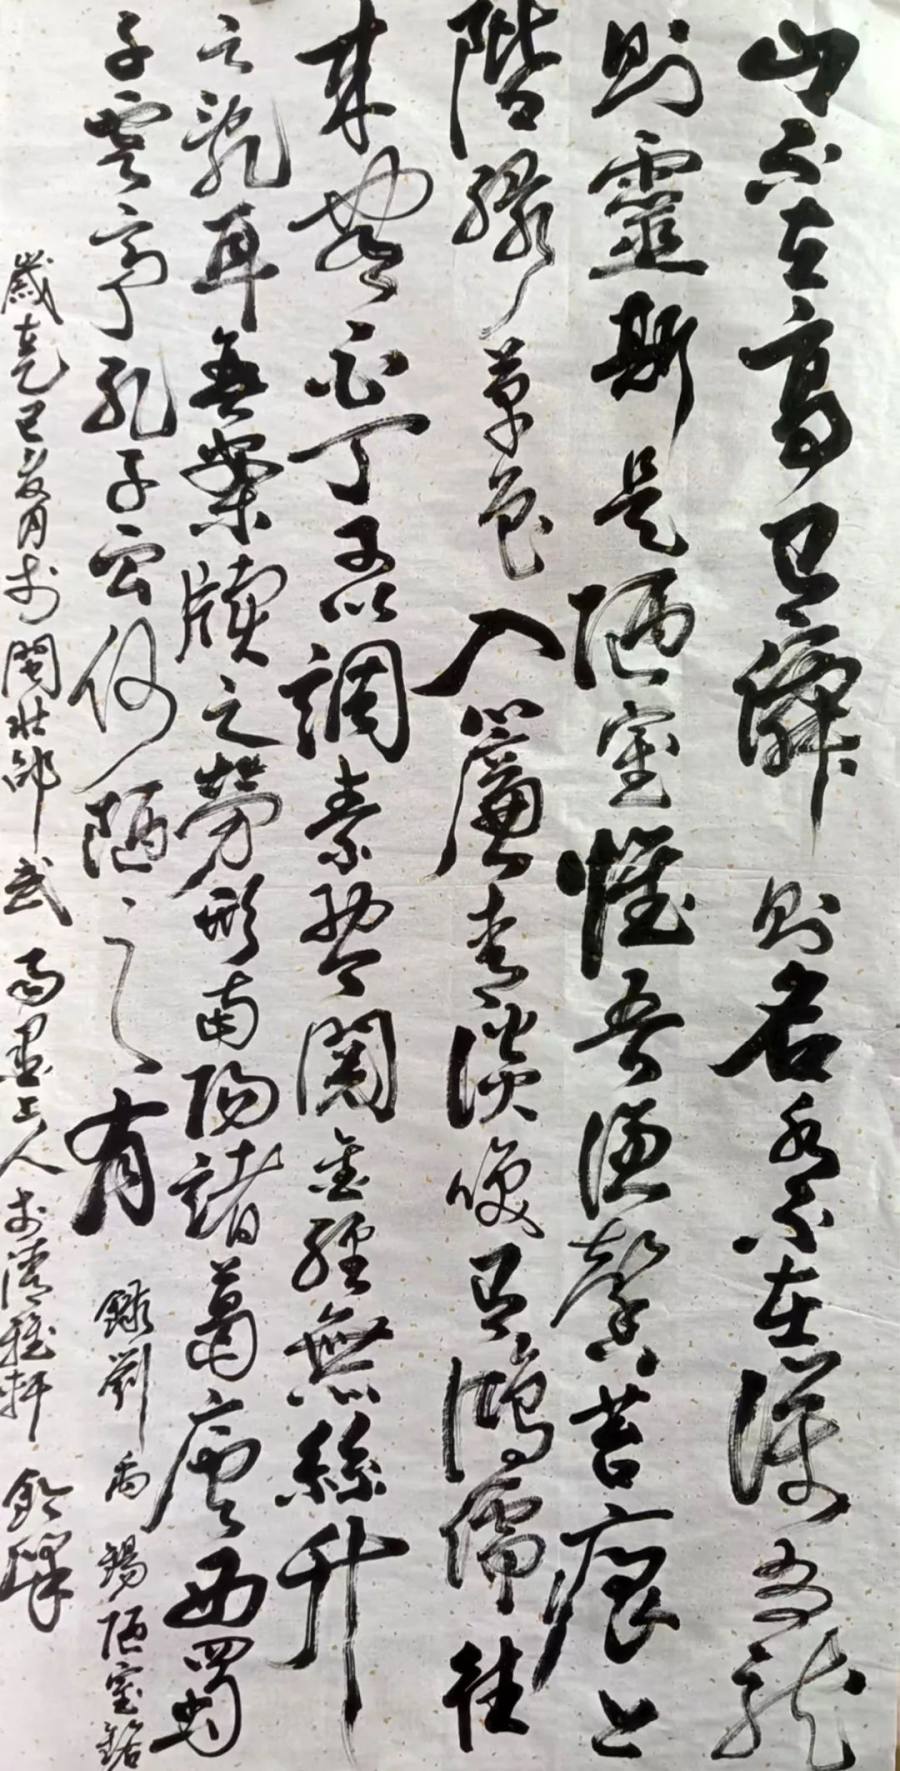 山不在高有僊則名水不在深有龍
則靈斯是陋室惟吾德馨苔痕上
階綠草色入簾青談笑有鴻儒往
來無白丁可以調素琴閱金經無絲竹
之亂耳無案牘之勞形南陽諸葛廬西蜀
子雲亭孔子云何陋之有 錄劉禹錫陋室銘
歲在乙巳夏月於閩北邵武 雨墨工人於清雅軒